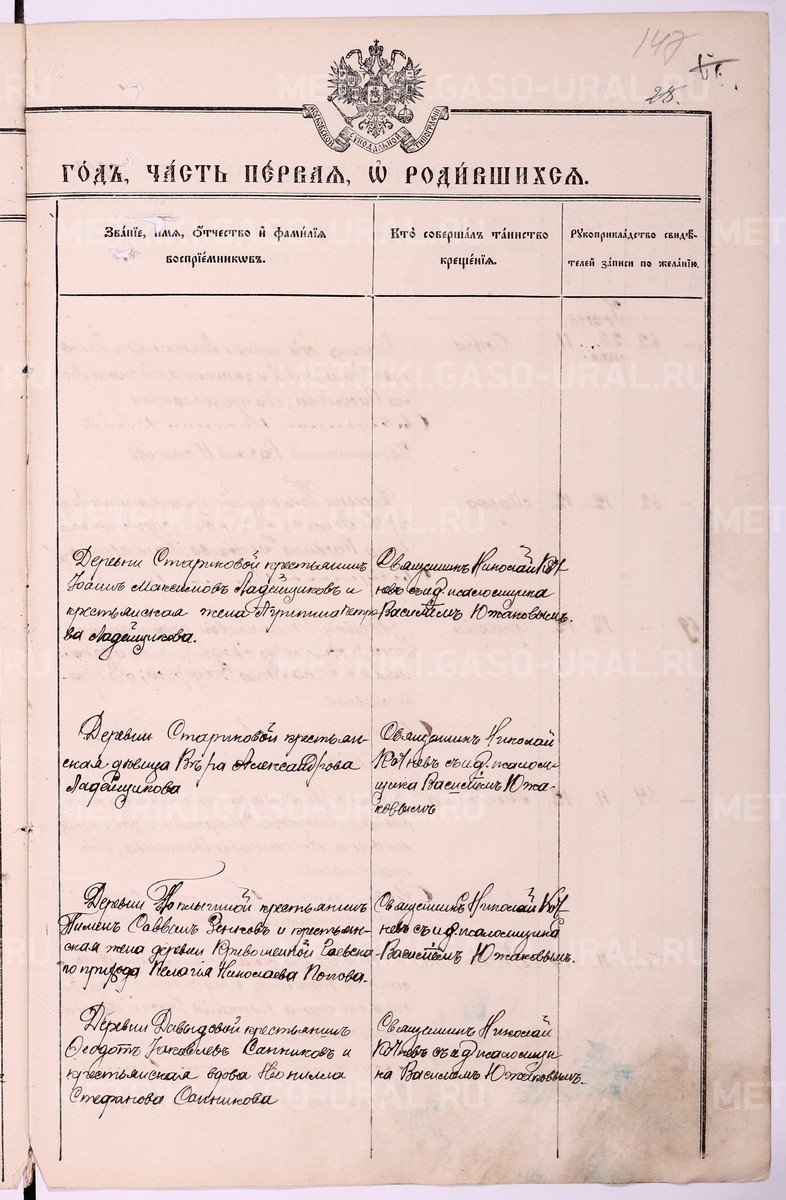 147
28.
МОСКОВСКОЙ СѴНОДАЛЬНОЙ ТИПОГРАФІИ
ГО́ДЪ, ЧА́СТЬ ПЕ́РВАЯ, Ѡ҆ РОДИ́ВШИХСѦ.
Зва́нїе, и҆́мѧ, ѻ҆́тчество и҆ фами́лїѧ
воспрїе́мникѡвъ.
Кто̀ соверша́лъ та́инство
креще́нїѧ.
Рꙋкоприкла́дство свидѣ́-
телей за́писи по жела́нїю.
Деревни Стариковой крестьянинъ
Іоаннъ Максимовъ Ладейщиковъ и
крестьянская жена Агрипина Петро
ва Ладейщикова.
Священникъ Николай
невъ съ и. д. псаломщика
Василіемъ Южаковымъ.
Деревни Стариковой крестьян-
ская девица Вѣра Александрова
Ладейщикова
Священникъ Николай
невъ съ и. д. псалом-
щика Василіемъ Южа-
ковымъ
Деревни крестьянинъ
Пименъ Саввинъ Зенковъ и крестьян-
ская жена деревни Кривошенной Раевска-
го прихода Пелагія Николаева Попова.
Священникъ Николай
невъ съ и. д. псаломщика
Василіемъ Южаковымъ.
Деревни Давыдовой крестьянинъ
Ѳеодотъ Іаковлевъ Санниковъ и
крестьянская вдова Неонилла
Стефанова Санникова
Священникъ Николай
невъ съ и. д. псаломщи
ка Василіемъ Южаковымъ.
METRIKI.GASO-URAL.RU